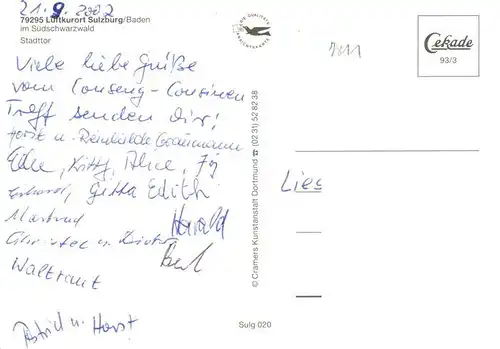 21.9.2002
79295 Luftkurort Sulzburg/Baden
im Südschwarzwald
Stadttor
Viele liebe Grüße
vom Couseng - Cousinen
Treff senden Dir!
Horst u. Reinhilde
Edu, Kitty, Alice,
Erhard, Gitta Edith
Harald
Christel u. Dieter
Waltraut
Astrid u. Horst
DIE QUALITÄTS ANSICHTSKARTE
© Cramers Kunstanstalt Dortmund ☎ (0231) 52 82 38
Sulg 020
Cekade
93/3
Lies